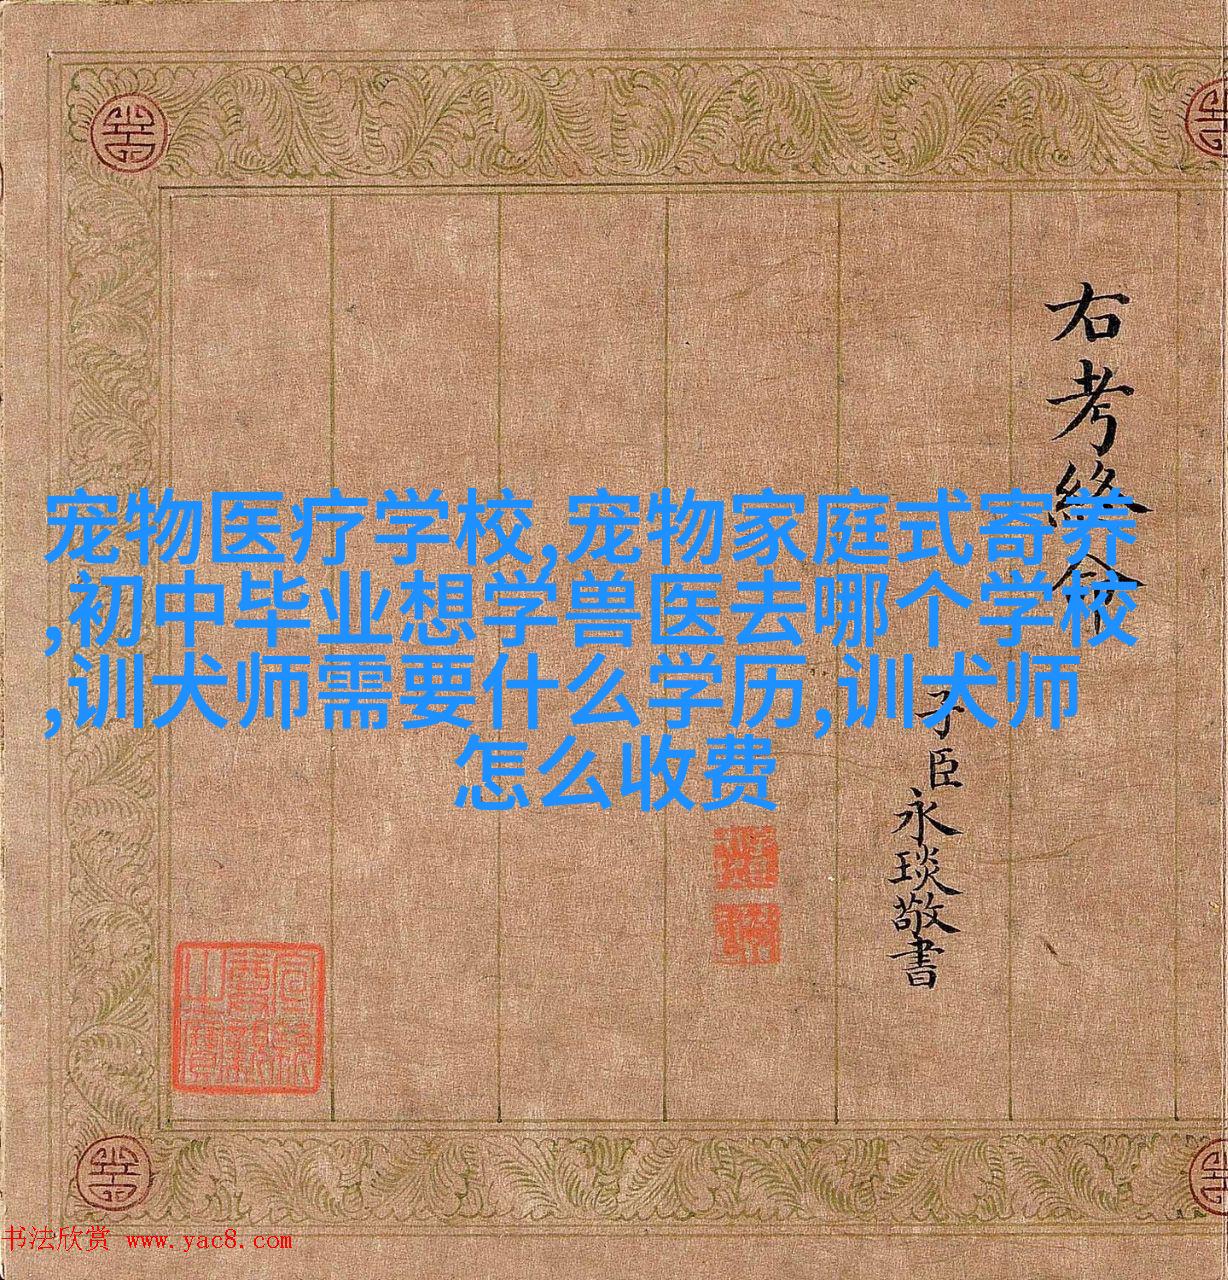 宠物医疗学校,宠物家庭式寄养
,初中毕业想学兽医去哪个学校
,训犬师需要什么学历,训犬师
怎么收费
右考終命
子臣
永琰敬書
书法欣赏 www.yac8.com